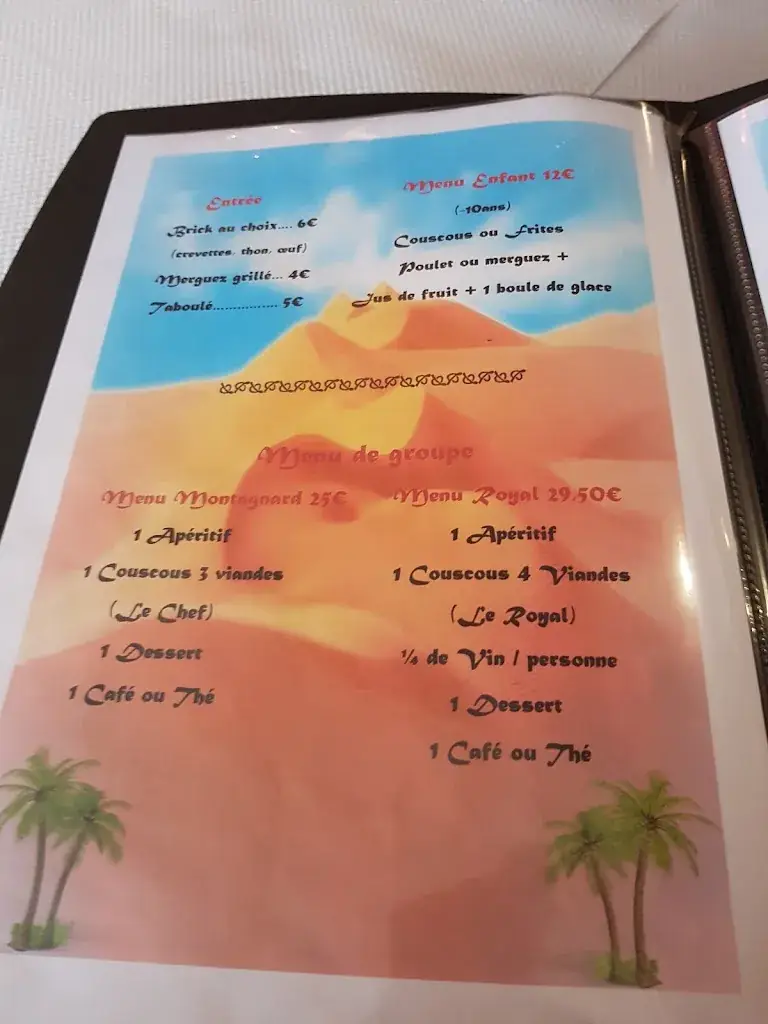 Entrée
Brick au choix.... 6€
(crevettes, thon, œuf)
Merguez grillé... 4€
Taboulé................ 5€
Menu Enfant 12€
(-10ans)
Couscous ou Frites
Poulet ou merguez +
Jus de fruit + 1 boule de glace
Menu de groupe
Menu Montagnard 25€
1 Apéritif
1 Couscous 3 viandes
(Le Chef)
1 Dessert
1 Café ou Thé
Menu Royal 29,50€
1 Apéritif
1 Couscous 4 Viandes
(Le Royal)
¼ de Vin / personne
1 Dessert
1 Café ou Thé